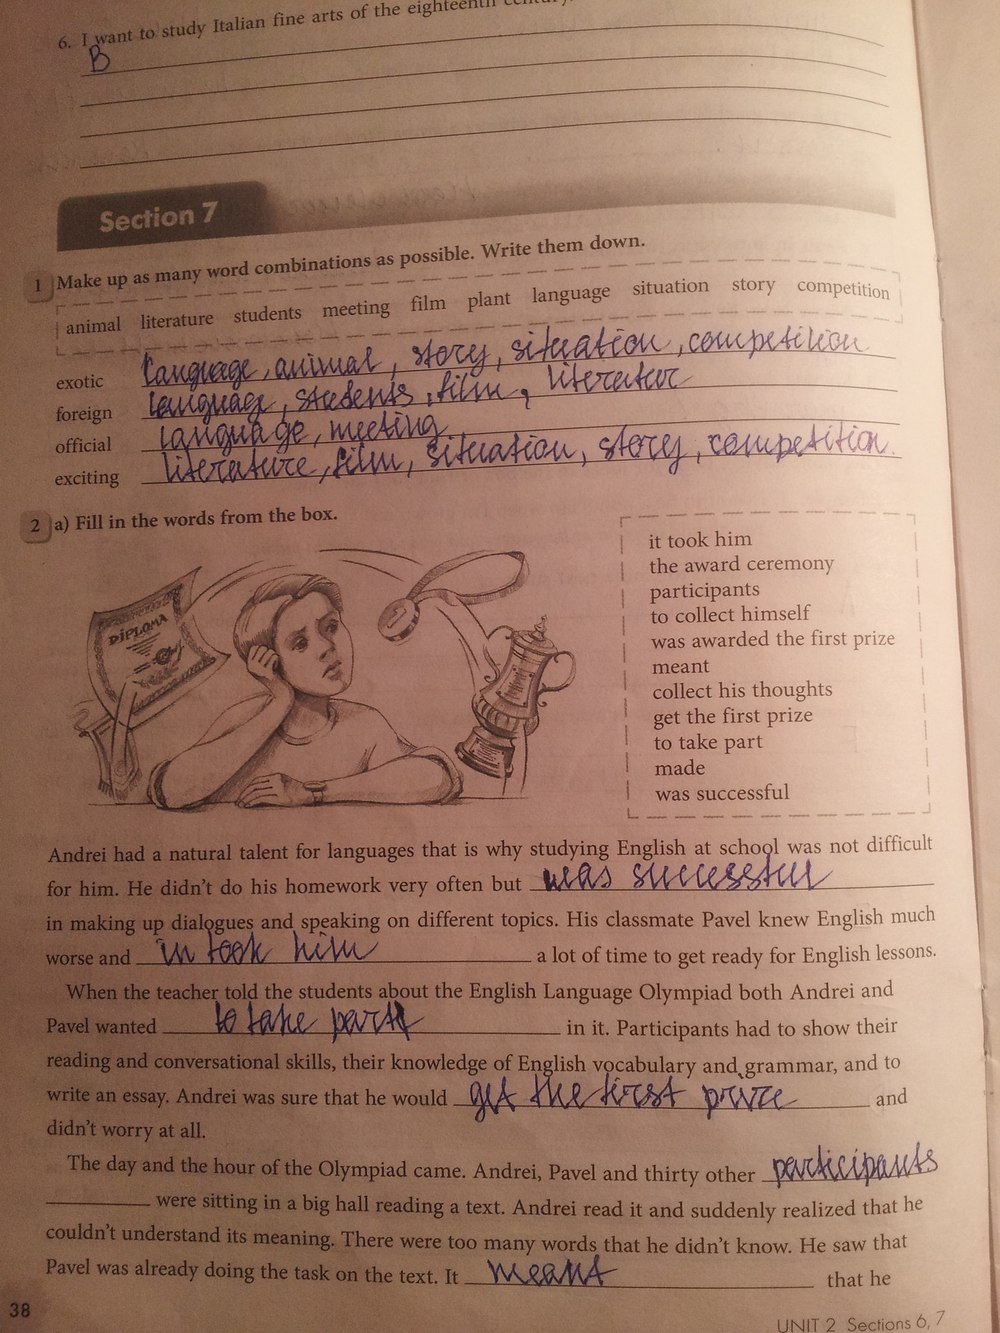 6. I want to study Italian fine arts of the eighteenth century.
B
Section 7
1 Make up as many word combinations as possible. Write them down.
animal literature students meeting film plant language situation story competition
exotic language, animal, story, situation, competition
foreign language, students, film, literatur
official language, meeting
exciting literature, film, situation, story, competition.
2 a) Fill in the words from the box.
it took him
the award ceremony
participants
to collect himself
was awarded the first prize
meant
collect his thoughts
get the first prize
to take part
made
was successful
DIPLOMA
Andrei had a natural talent for languages that is why studying English at school was not difficult
for him. He didn't do his homework very often but was successful
in making up dialogues and speaking on different topics. His classmate Pavel knew English much
worse and in took him a lot of time to get ready for English lessons.
When the teacher told the students about the English Language Olympiad both Andrei and
Pavel wanted to take part in it. Participants had to show their
reading and conversational skills, their knowledge of English vocabulary and grammar, and to
write an essay. Andrei was sure that he would get the first price and
didn't worry at all.
The day and the hour of the Olympiad came. Andrei, Pavel and thirty other participants
were sitting in a big hall reading a text. Andrei read it and suddenly realized that he
couldn't understand its meaning. There were too many words that he didn't know. He saw that
Pavel was already doing the task on the text. It meant that he
38
UNIT 2 Sections 6, 7